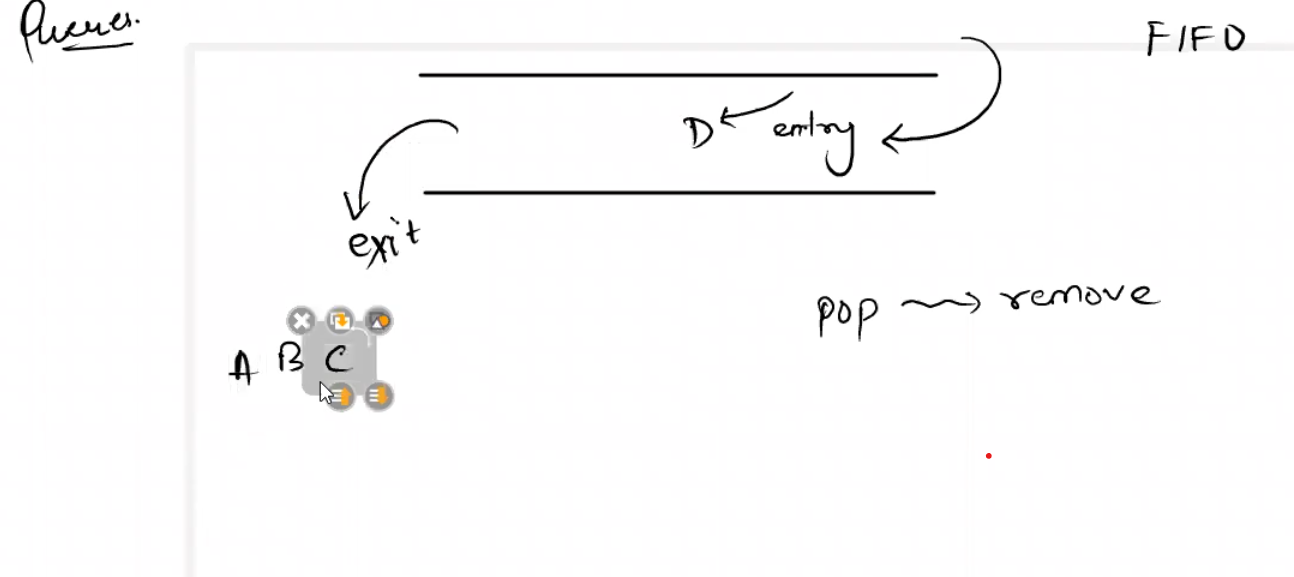 Queues.
FIFO
D entry
exit
pop → remove
A B C